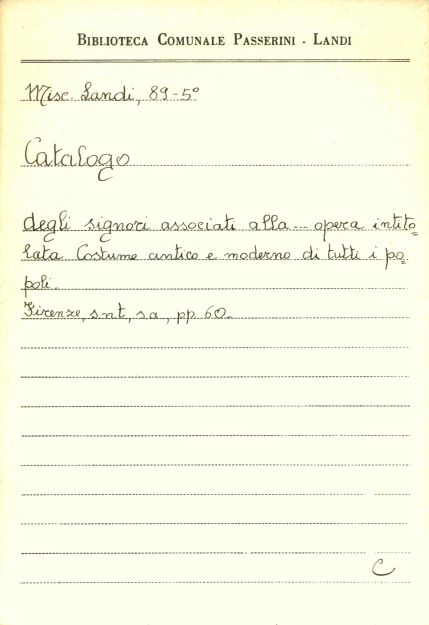 BIBLIOTECA COMUNALE PASSERINI - LANDI
Misc. Landi, 89-5º
Catalogo
degli signori associati alla... opera intito=
lata Costume antico e moderno di tutti i po=
poli.
Firenze, s.n.t, s.a, pp. 60.
C